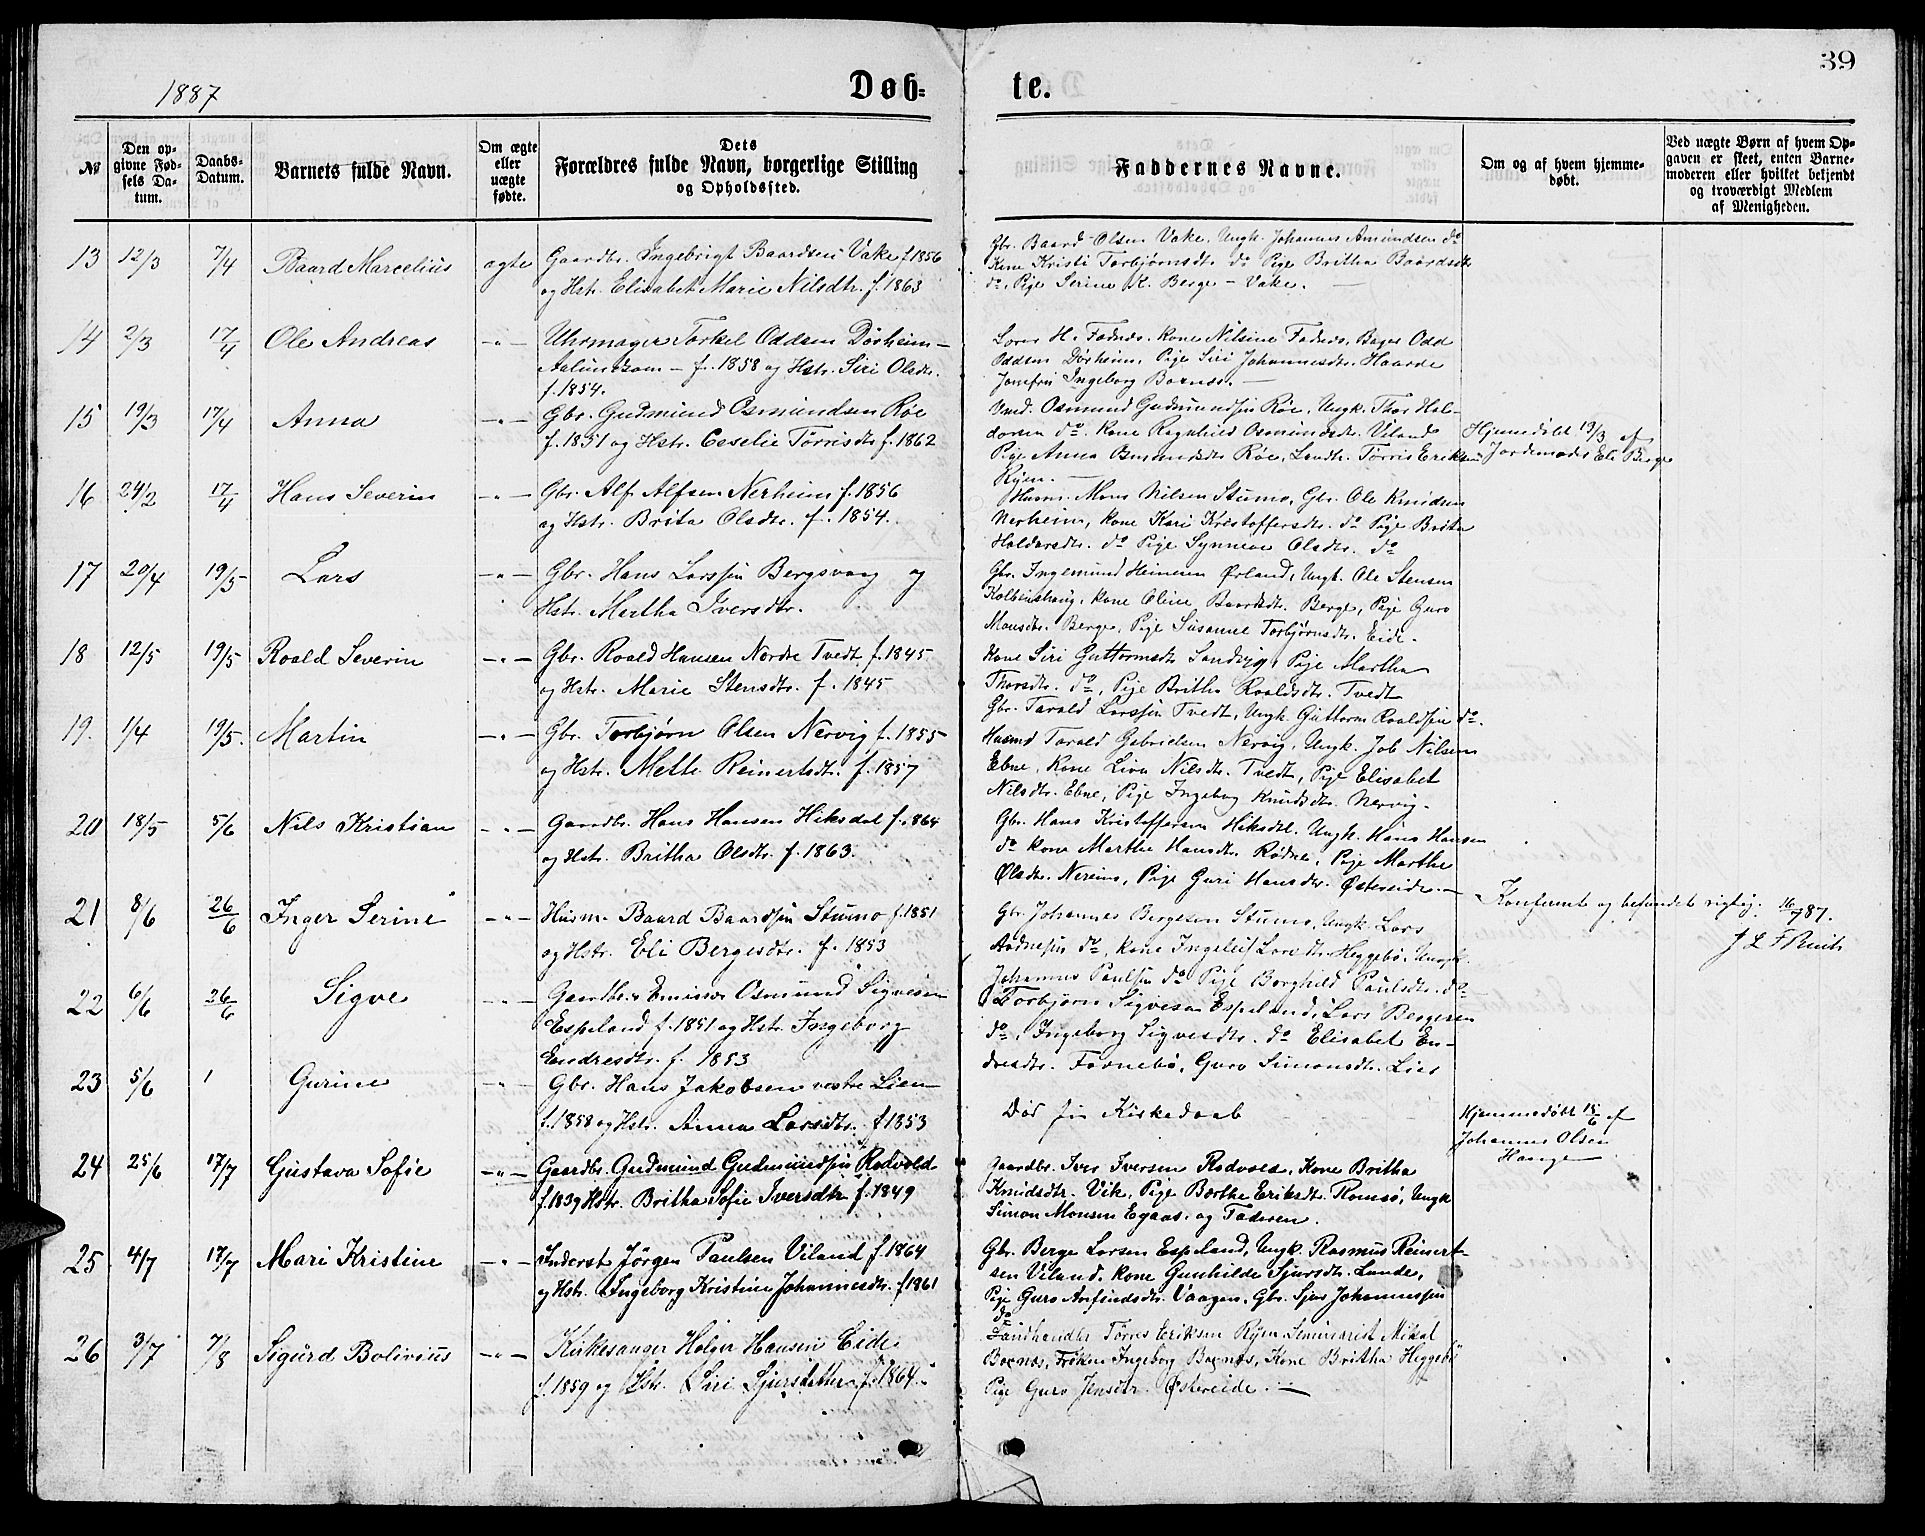 39
1887
Døb-
te.
№
Den op-
givne Fød-
sels Da-
tum.
Daabs-
Datum.
Barnets fulde Navn.
Om ægte
eller
uægte
fødte.
Dets
Forældres fulde Navn, borgerlige Stilling
og Opholdssted.
Faddernes Navne.
Om og af hvem hjemme-
døbt.
Ved uægte Børn af hvem Op-
gaven er skeet, enten Barne-
moderen eller hvilket bekjendt
og troværdigt Medlem
af Menigheden.
13 12/3 7/4 Baard Marcelius ægte Gaardbr. Ingebrigt Baardsen Vake f. 1856
og Hstr. Elisabet Marie Nilsdtr. f. 1863
Gbr. Baard Olsen Vake, Ungk. Johannes Amundsen do
Kone Kristi Torbjørnsdtr. do Pige Britha Baardsdtr
do, Pige Serine K. Berge - Vake. —
14 2/3 17/4 Ole Andreas -"- Uhrmager Torkel Oddsen Dørheim -
Aalesund - f. 1858 og Hstr. Siri Olsdtr.
f. 1854.
Lars H. Fadnes, Kone Nilsine Fadnes, Bager Odd
Oddsen Dørheim, Pige Siri Johannesdtr. Haarde
Jomfru Ingeborg Børnes. —
15 19/3 17/4 Anna -"- Gbr. Gudmund Osmundsen Røe
f. 1851 og Hstr. Ceselie Tørrisdtr f. 1862
Osmund Gudmundsen Røe, Ungk. Thor Hal-
dorsen do. Kone Ragnhild Osmundsdtr. Viland
Pige Anna Osmundsdtr Røe, Landh. Tørris Eriksen
Ryen. —
Hjemmedøbt 19/3 af
Jordemoder Eli Berge
16 24/2 17/4 Hans Severin -"- Gbr. Alf Alfsen Nerheim f. 1856
og Hstr. Brita Olsdtr. f. 1854.
Husm. Mons Nilsen Stumo, Gbr. Ole Knudsen
Nerheim, Kone Kari Kristoffersdtr. do Pige Brita
Haldorsdtr. do Pige Synneve Olsdtr. do
17 20/4 19/5 Lars -"- Gbr. Hans Larssen Bergsvaag og
Hstr. Martha Iversdtr.
Gbr. Ingemund Heinesen Ørland, Ungk. Ole Stensen
Kolbeinshaug, Kone Oline Baardsdtr. Berge, Pige Guro
Monsdtr. Berge, Pige Susanne Torbjørnsdtr. Eide.
18 12/5 19/5 Roald Severin -"- Gbr. Roald Hansen Nordre Tvedt f. 1845
og Hstr. Marie Stensdtr. f. 1845
Kone Siri Guttormsdtr Sandvig, Pige Martha
Thorsdtr. do, Pige Britha Roaldsdtr. Tvedt
Gbr. Tarald Larssen Tvedt, Ungk. Guttorm Roaldsen do.
19. 1/4 19/5. Martin -"- Gbr. Torbjørn Olsen Nervig f. 1855
og Hstr. Mette Reinertsdtr. f. 1857
Husmd Tarald Gabrielsen Nervig, Ungk. Job Nilsen
Ebne, Kone Liva Nilsdtr. Tvedt, Pige Elisabet
Nilsdtr. Ebne, Pige Ingeborg Knudsdtr. Nervig.
20 18/5 5/6 Nils Kristian -"- Gaardbr. Hans Hansen Hiksdal f. 1864
og Hstr. Britha Olsdtr. f. 1863.
Gbr. Hans Kristoffersen Hiksdal. Ungk. Hans Hansen
do Kone Marthe Hansdtr. Rødne, Pige Marthe
Olsdtr. Nereim, Pige Guri Hansdtr. Østereide. —
21 8/6 26/6 Inger Serine -"- Husm. Baard Baardsen Stumo f. 1851
og Hstr. Eli Bergesdtr. f. 1853
Gbr. Johannes Bergesen Stumo, Ungk. Lars
Aadnesen do, Kone Ingeleif Larsdtr. Heggebø, Ungk.
Johannes Paulsen do Pige Borghild Paulsdtr. do
Konfereret og befundet rigtig. 16/7 87.
22 6/6 26/6 Sigve -"- Gaardbr. Emissær Osmund Sigvesen
Espeland f. 1851 og Hstr. Ingeborg
Endresdtr. f. 1853
Torbjørn Sigvesen Espeland, Lars Bergesen
do, Ingeborg Sigvesdtr. do Elisabet En-
dresdtr. Fornebø, Guro Simonsdtr. Lien
23 5/6 1 Gurine -"- Gbr. Hans Jakobsen vestre Lien
f. 1858 og Hstr. Anna Larsdtr. f 1853
Død før Kirkedaab
Hjemmedøbt 15/6 af
Johannes Olsen
Hauge
24 25/6 17/7 Gustava Sofie -"- Gaardbr. Gudmund Gudmundsen Rødvold
f. 1839 Hstr. Britha Sofie Iversdtr f. 1849
Gaardbr. Iver Iversen Rødvold, Kone Britha
Knudsdtr. Vik, Pige Berthe Eriksdtr. Romsø, Ungk
Simon Monsen Egaas. og Faderen.
25 4/7 17/7 Mari Kristine -"- Inderst Jørgen Paulsen Viland f. 1864
og Hstr. Ingeborg Kristine Johannesdtr. f 1861
Gbr. Berge Larsen Espeland, Ungk. Rasmus Reinert-
sen Viland. Kone Gunhilde Sjursdtr. Lunde,
Pige Guro Anfindsdtr. Vaagen, Gbr. Sjur Johannessen
do
26 3/7 7/8 Sigurd Bolivius -"- Kirkesanger Holger Hansen Eide
f. 1859 og Hstr. Siri Sjursdatter f. 1864.
Landhandler Tørres Eriksen Ryen, Seminarist Mikal
Børnes, Frøken Ingeborg Børnes, Kone Britha Heggebø
Pige Guro Jensdtr. Østereide. —